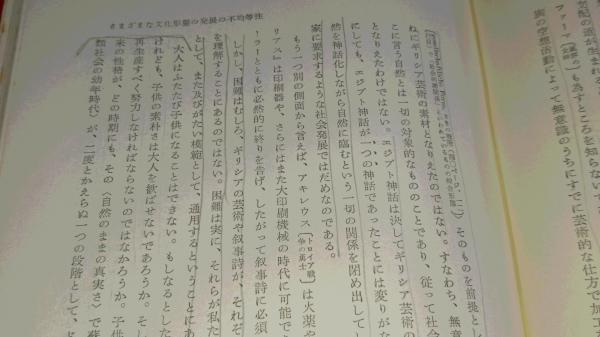 さまざまな文化形態の発展の不均等性
支配の道が生まれる
ファーマ〔風評の〕も為すところを知らない
族の空想活動によって無意識のうちにすでに芸術的な仕方で加工
そのものを前提とし
ねにギリシア芸術の素材となりえたのではない。すなわち、無意
に言う自然とは一切の対象的なもののことであり、従って社会
となりえたわけではない。エジプト神話は決してギリシア芸術の
にしても、エジプト神話が一つの神話であったことには変りがな
然を神話化しながら自然に臨むという一切の関係を閉め出して
家に要求するような社会発展ではだめなのである。
もう一つ別の側面から言えば、アキレウス〔トロイア戦争の勇士〕は火薬や
リアス』は印刷器や、さらにはまた大印刷機械の時代に可能で
ーラーとともに必然的に終りを告げ、したがって叙事詩に必須
しかし、困難はむしろ、ギリシアの芸術や叙事詩が、それぞ
を理解することにあるのではない。困難は実に、それらが私た
として、また及びがたい模範として、通用するということにあ
大人はふたたび子供になることはできない。もしなるとした
けれども、子供の素朴さは大人を歓ばせないであろうか。そし
再生産すべく努力しなければならないのではなかろうか。子供
来の性格が、どの時期にも、その〈自然のままの真実さ〉で蘇
類社会の幼年時代が、二度とかえらぬ一つの段階として、